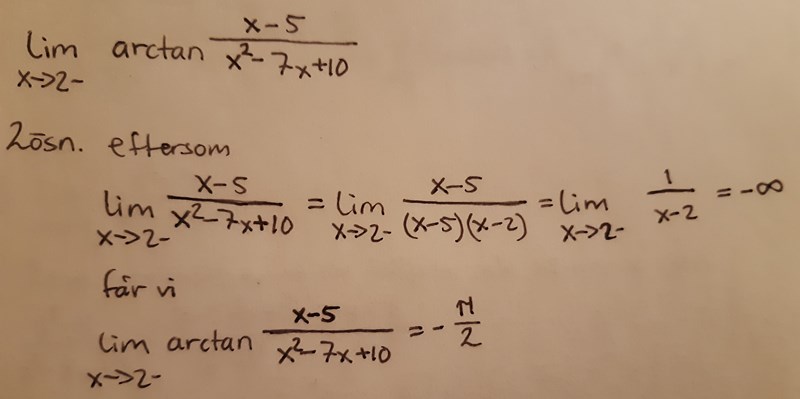 lim x→2- arctan (x-5)/(x²-7x+10)
Lösn. eftersom
lim x→2- (x-5)/(x²-7x+10) = lim x→2- (x-5)/((x-5)(x-2)) = lim x→2- 1/(x-2) = -∞
får vi
lim x→2- arctan (x-5)/(x²-7x+10) = -π/2